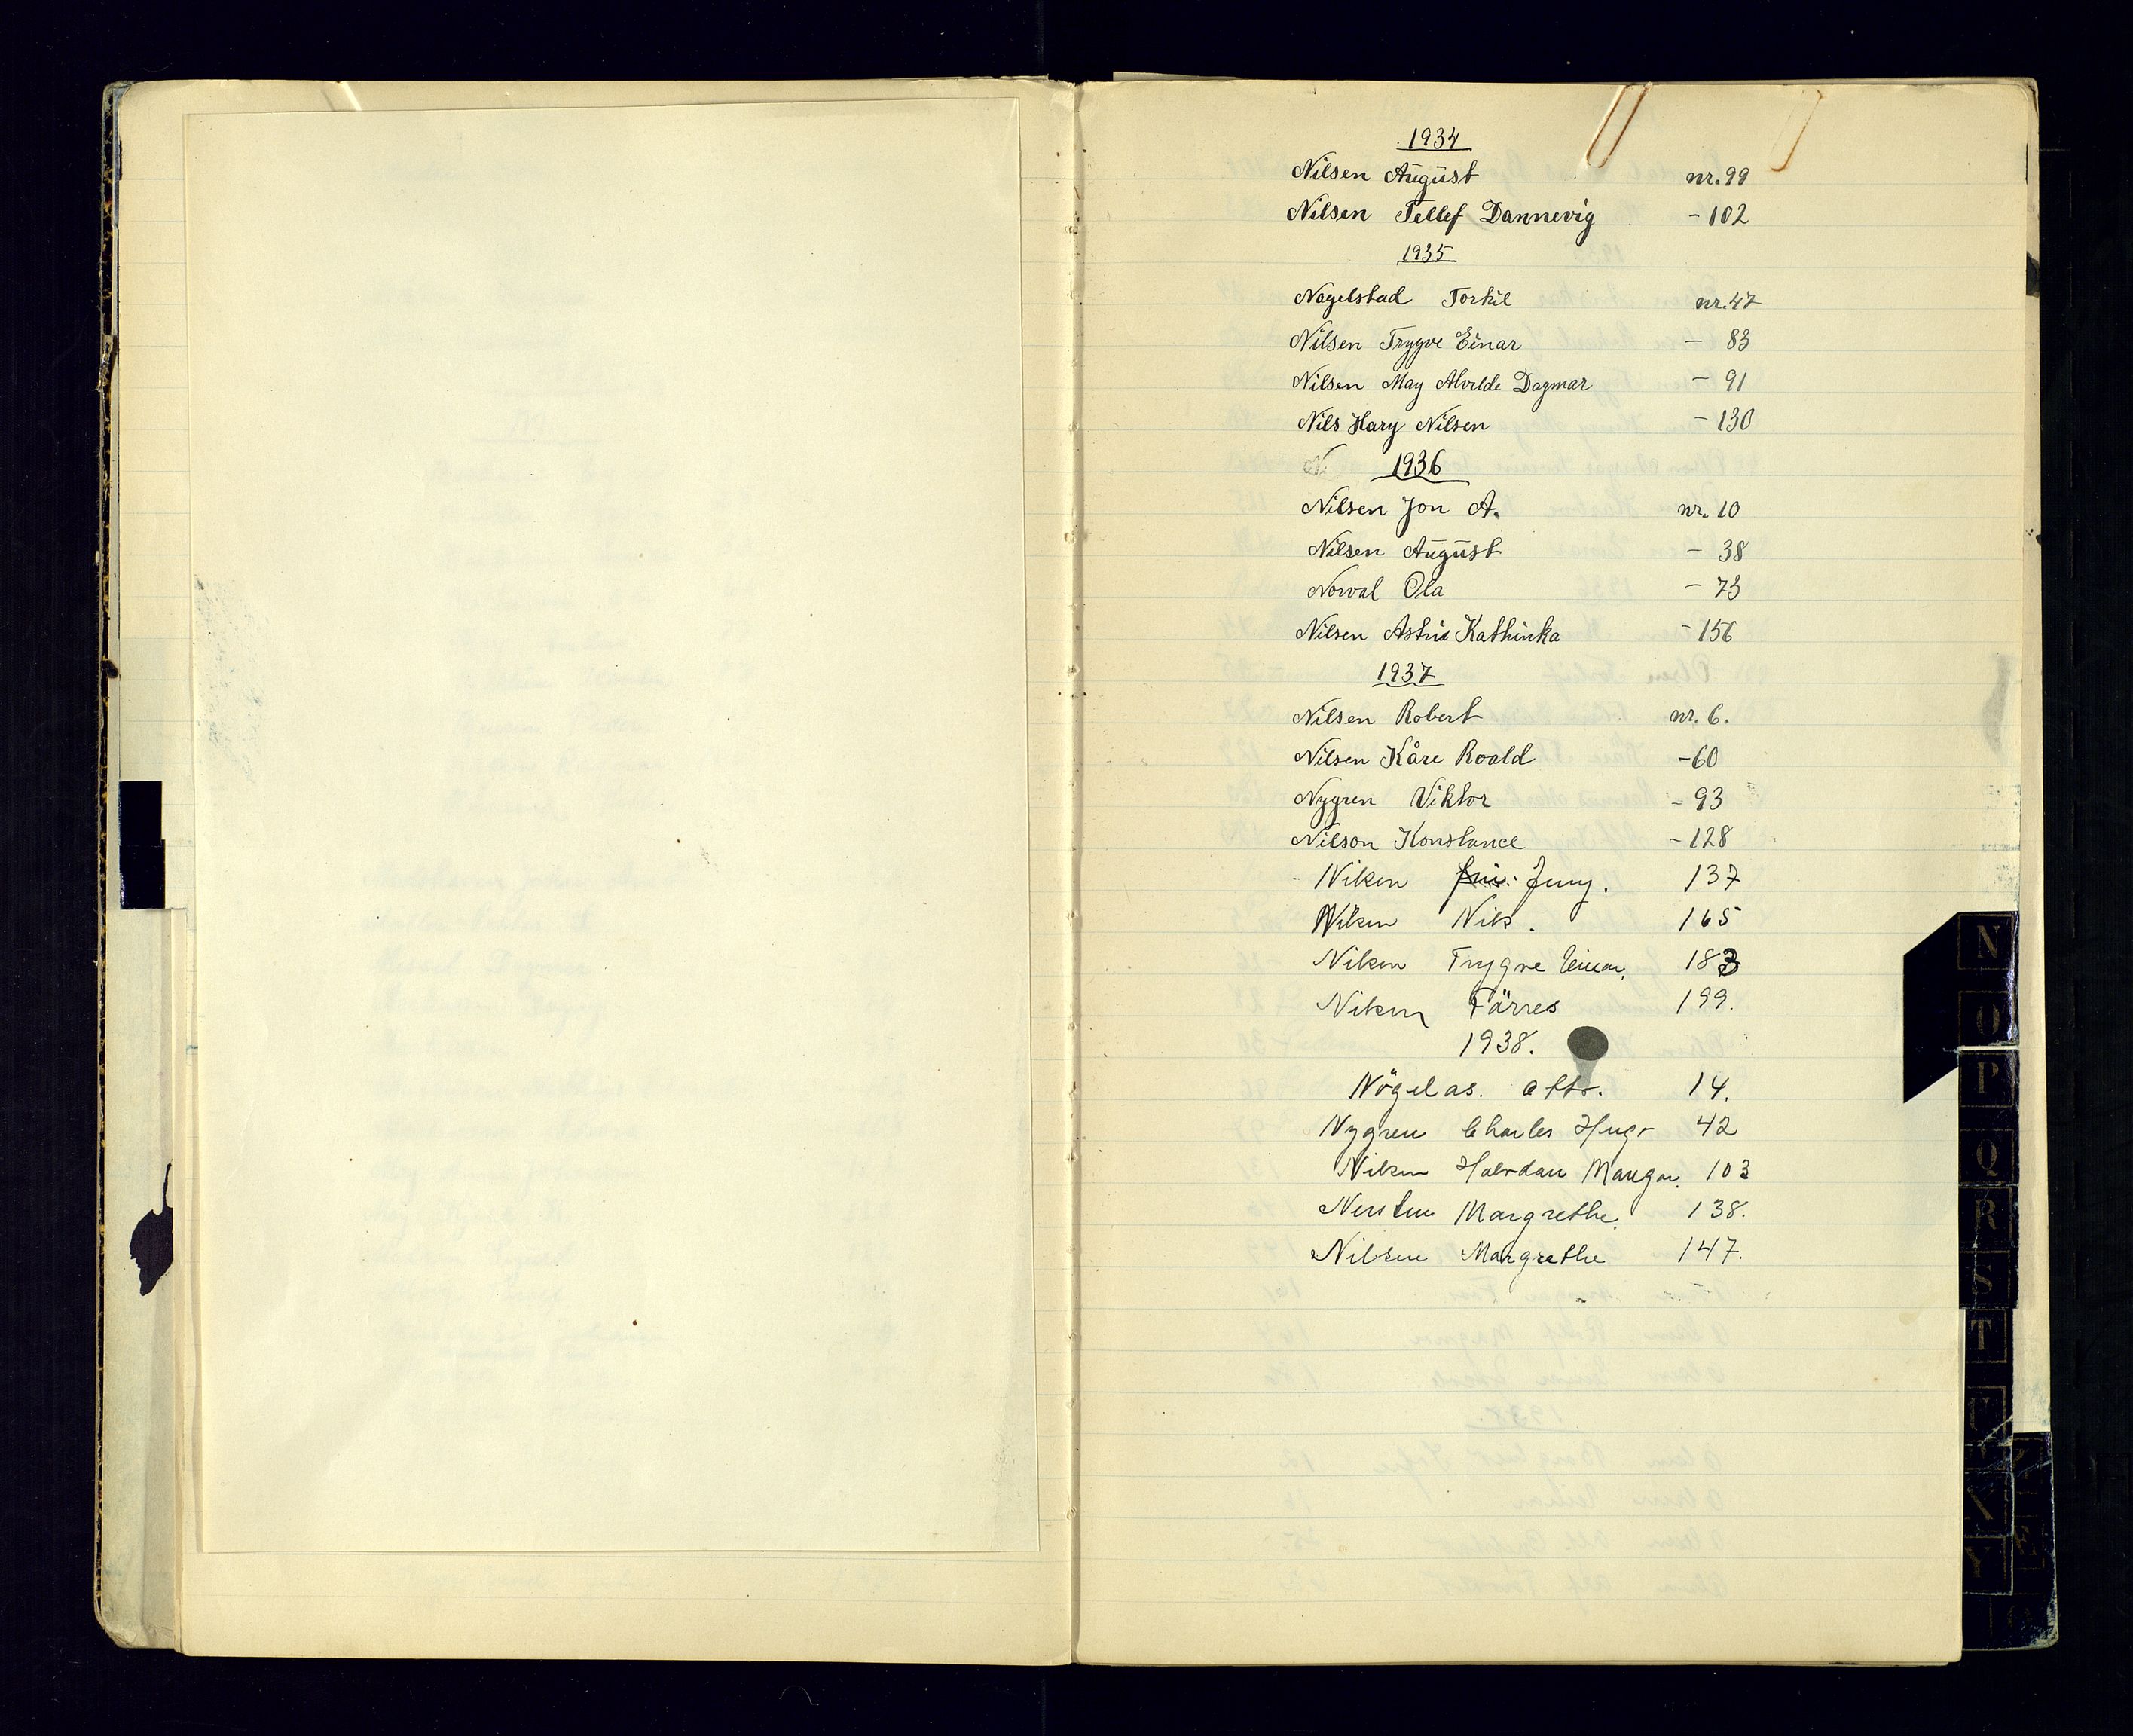 1934
Nilsen August nr. 99
Nilsen Tellef Dannevig - 102
1935
Nagelstad Torkil nr. 47
Nilsen Trygve Einar - 83
Nilsen May Alvilde Dagmar - 91
Nils Hary Nilsen - 130
1936
Nilsen Jon A. nr. 10
Nilsen August - 38
Norval Ola - 73
Nilsen Astri Kathinka - 156
1937
Nilsen Robert nr. 6.
Nilsen Kåre Roald - 60
Nygren Viktor - 93
Nilson Konstance - 128
Nilsen Jung. 137
Nilsen Nils. 165
Nilsen Trygve Einar. 183
Nilsen Färres 199.
1938.
Nögel as. Otto. 14.
Nygren Charles Hugo 42
Nilsen Halvdan 103
Margrethe. 138.
Nilsen Margrethe 147.
N
O
P
Q
R
S
T